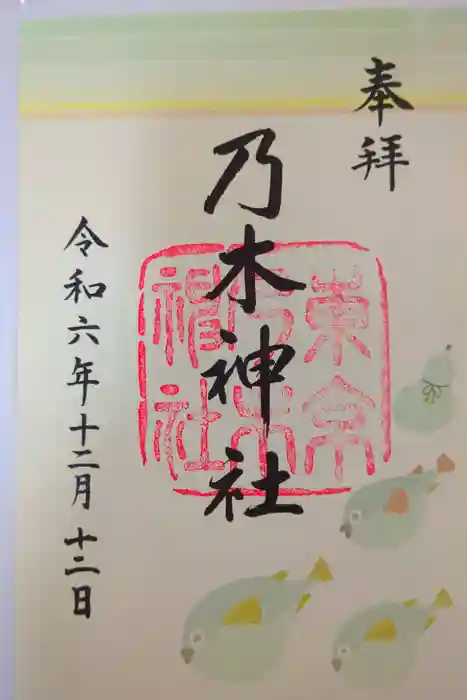 奉拝
乃木神社
東京
乃木
神社
令和六年十二月十二日